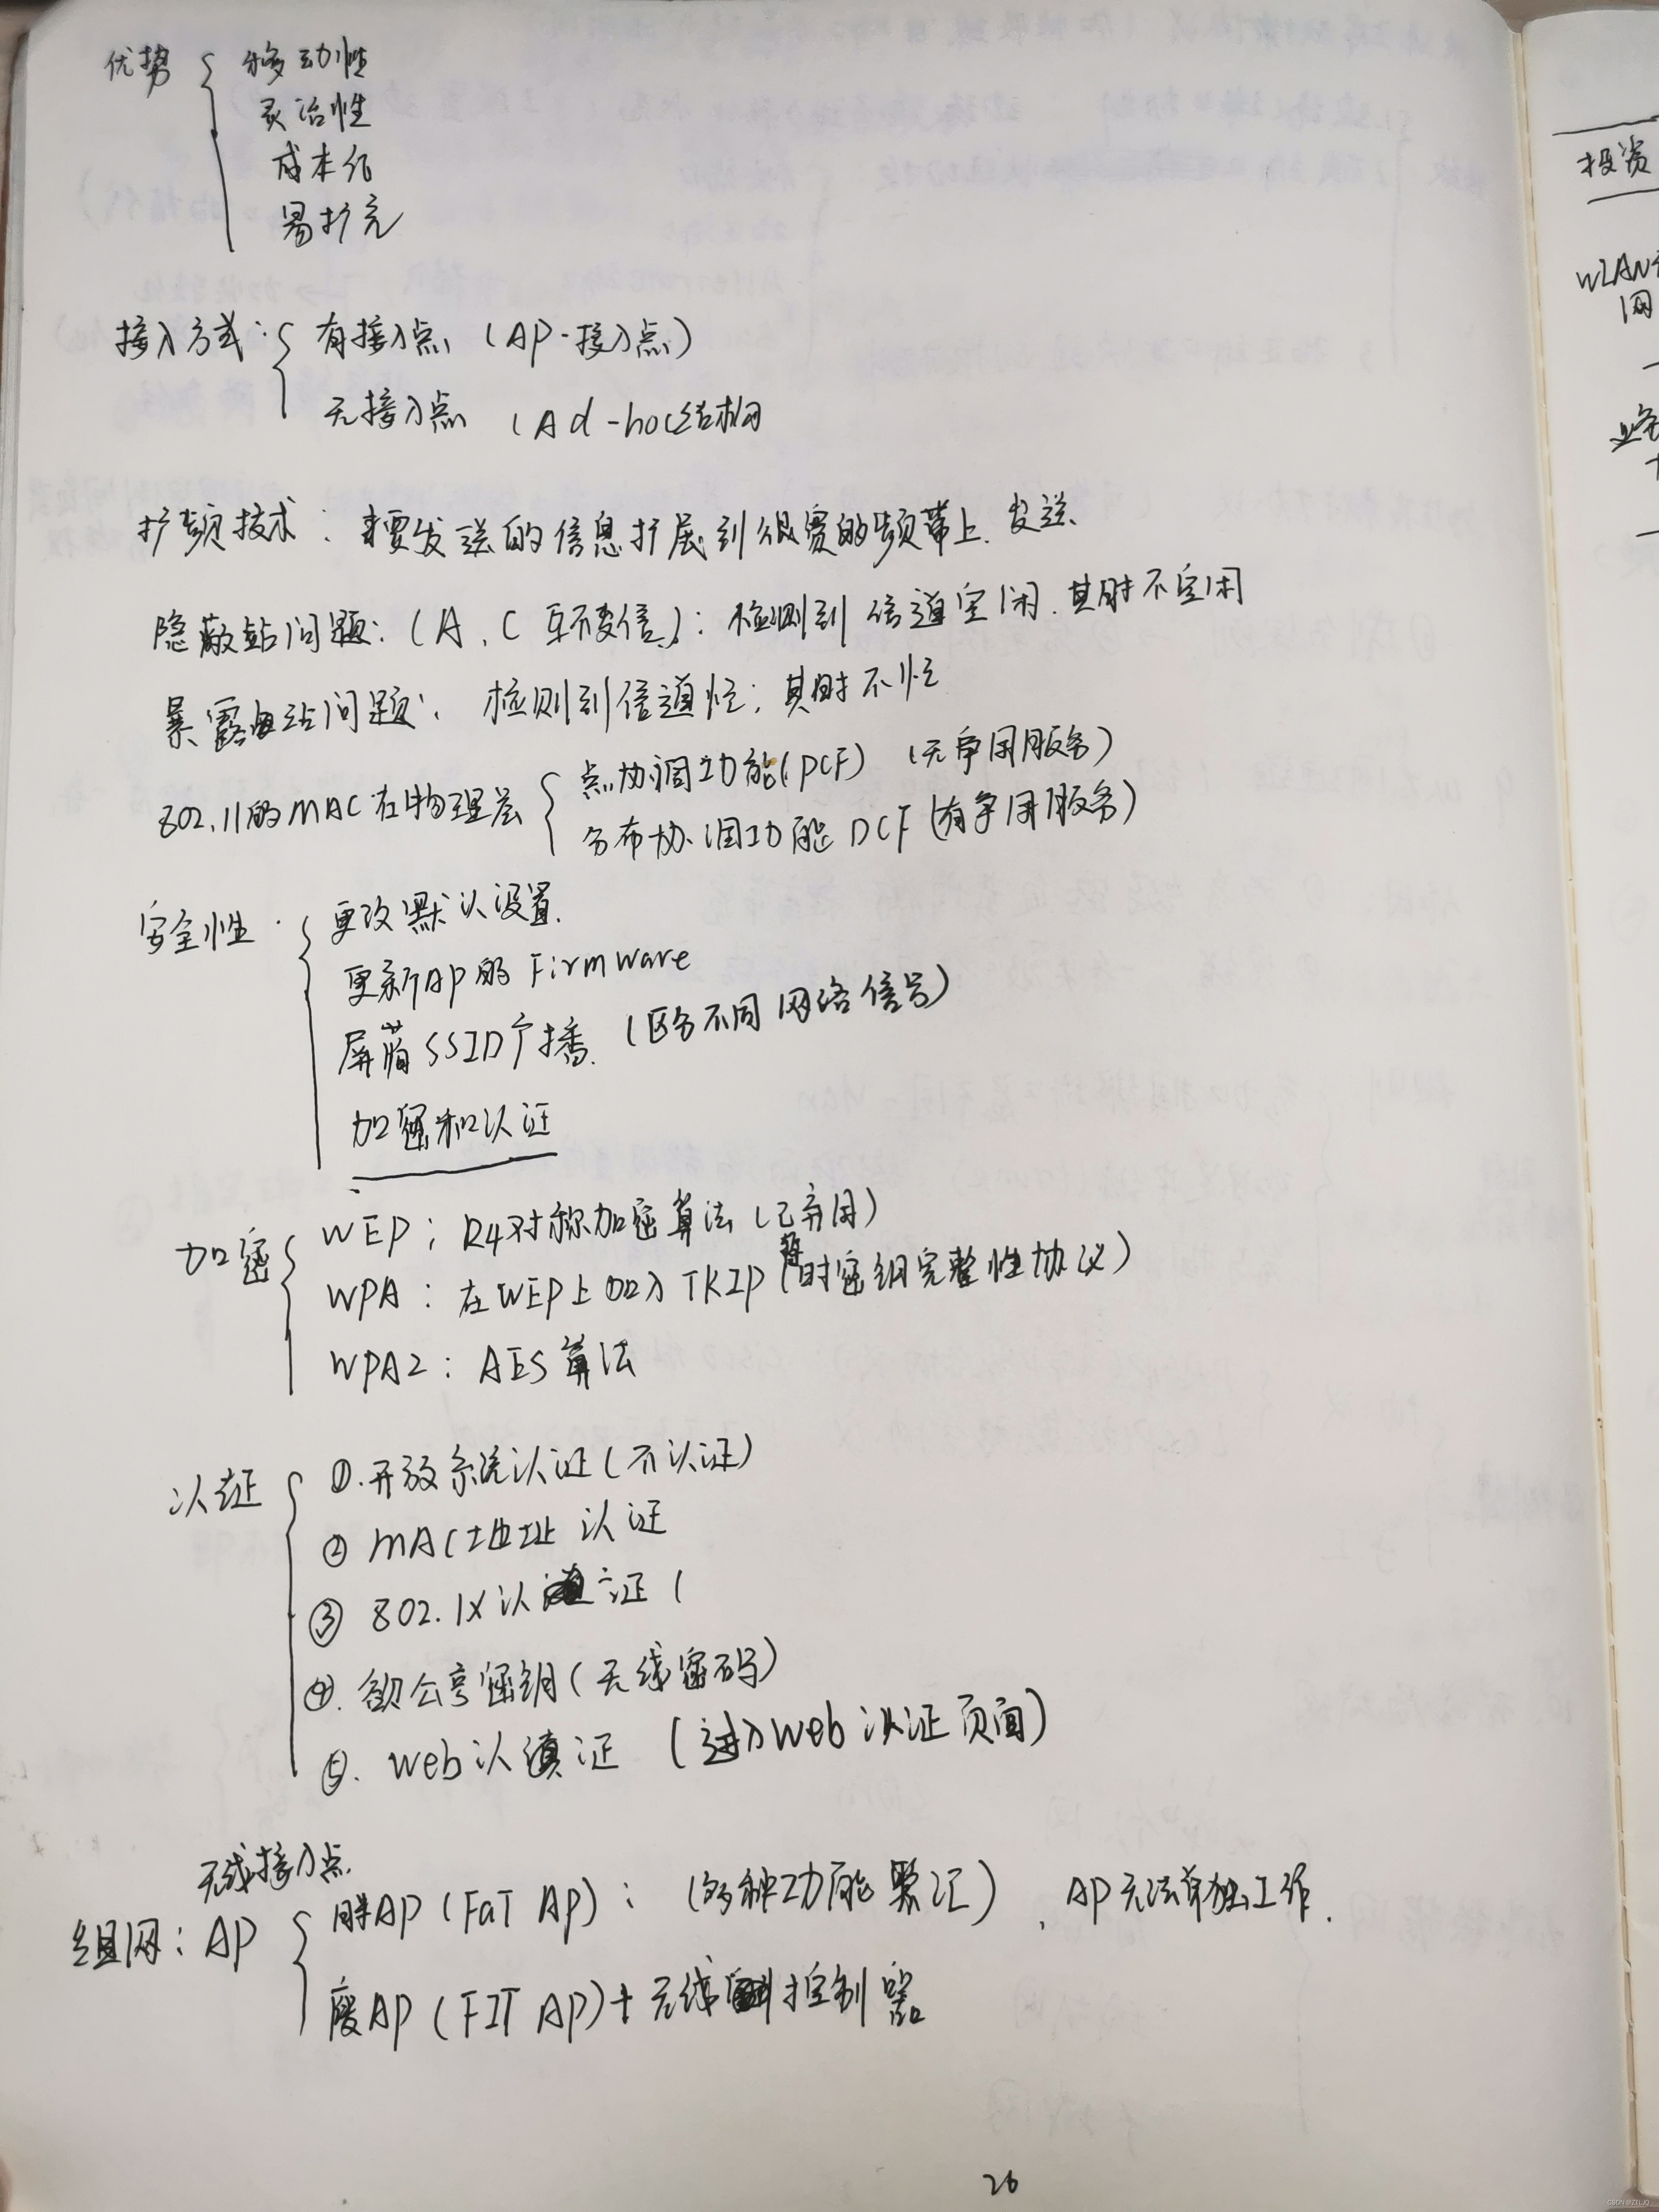 优势 移动性
灵活性
成本低
易扩充
接入方式: 有接入点 (AP-接入点)
无接入点 (Ad-hoc结构
扩频技术: 要发送的信息扩展到很宽的频带上.发送
隐蔽站问题: (A、C 互不变信): 检测到信道空闲.其时不空闲
暴露站问题: 检测到信道忙; 其时不忙
802.11的MAC在物理层 点协调功能(PCF) (无争用服务)
分布协调功能DCF (有争用服务)
安全性. 更改默认设置.
更新AP的Firmware
屏蔽SSID广播. (区分不同网络信号)
加密和认证
加密 WEP: R4对称加密算法 (已弃用)
WPA: 在WEP上加入TKIP (暂时密钥完整性协议)
WPA2: AES算法
认证 ①.开放系统认证(不认证)
② MAC地址认证
③ 802.1x认证 (
④. 公享密钥(无线密码)
⑤. web认证 (进入web认证页面)
无线接入点.
组网: AP 胖AP (FaT AP): (多种功能聚汇) 、AP无法单独工作.
AP (FIT AP)+无线控制器
26
投资
WLAN
网
业务
CSDN @ZLJQ